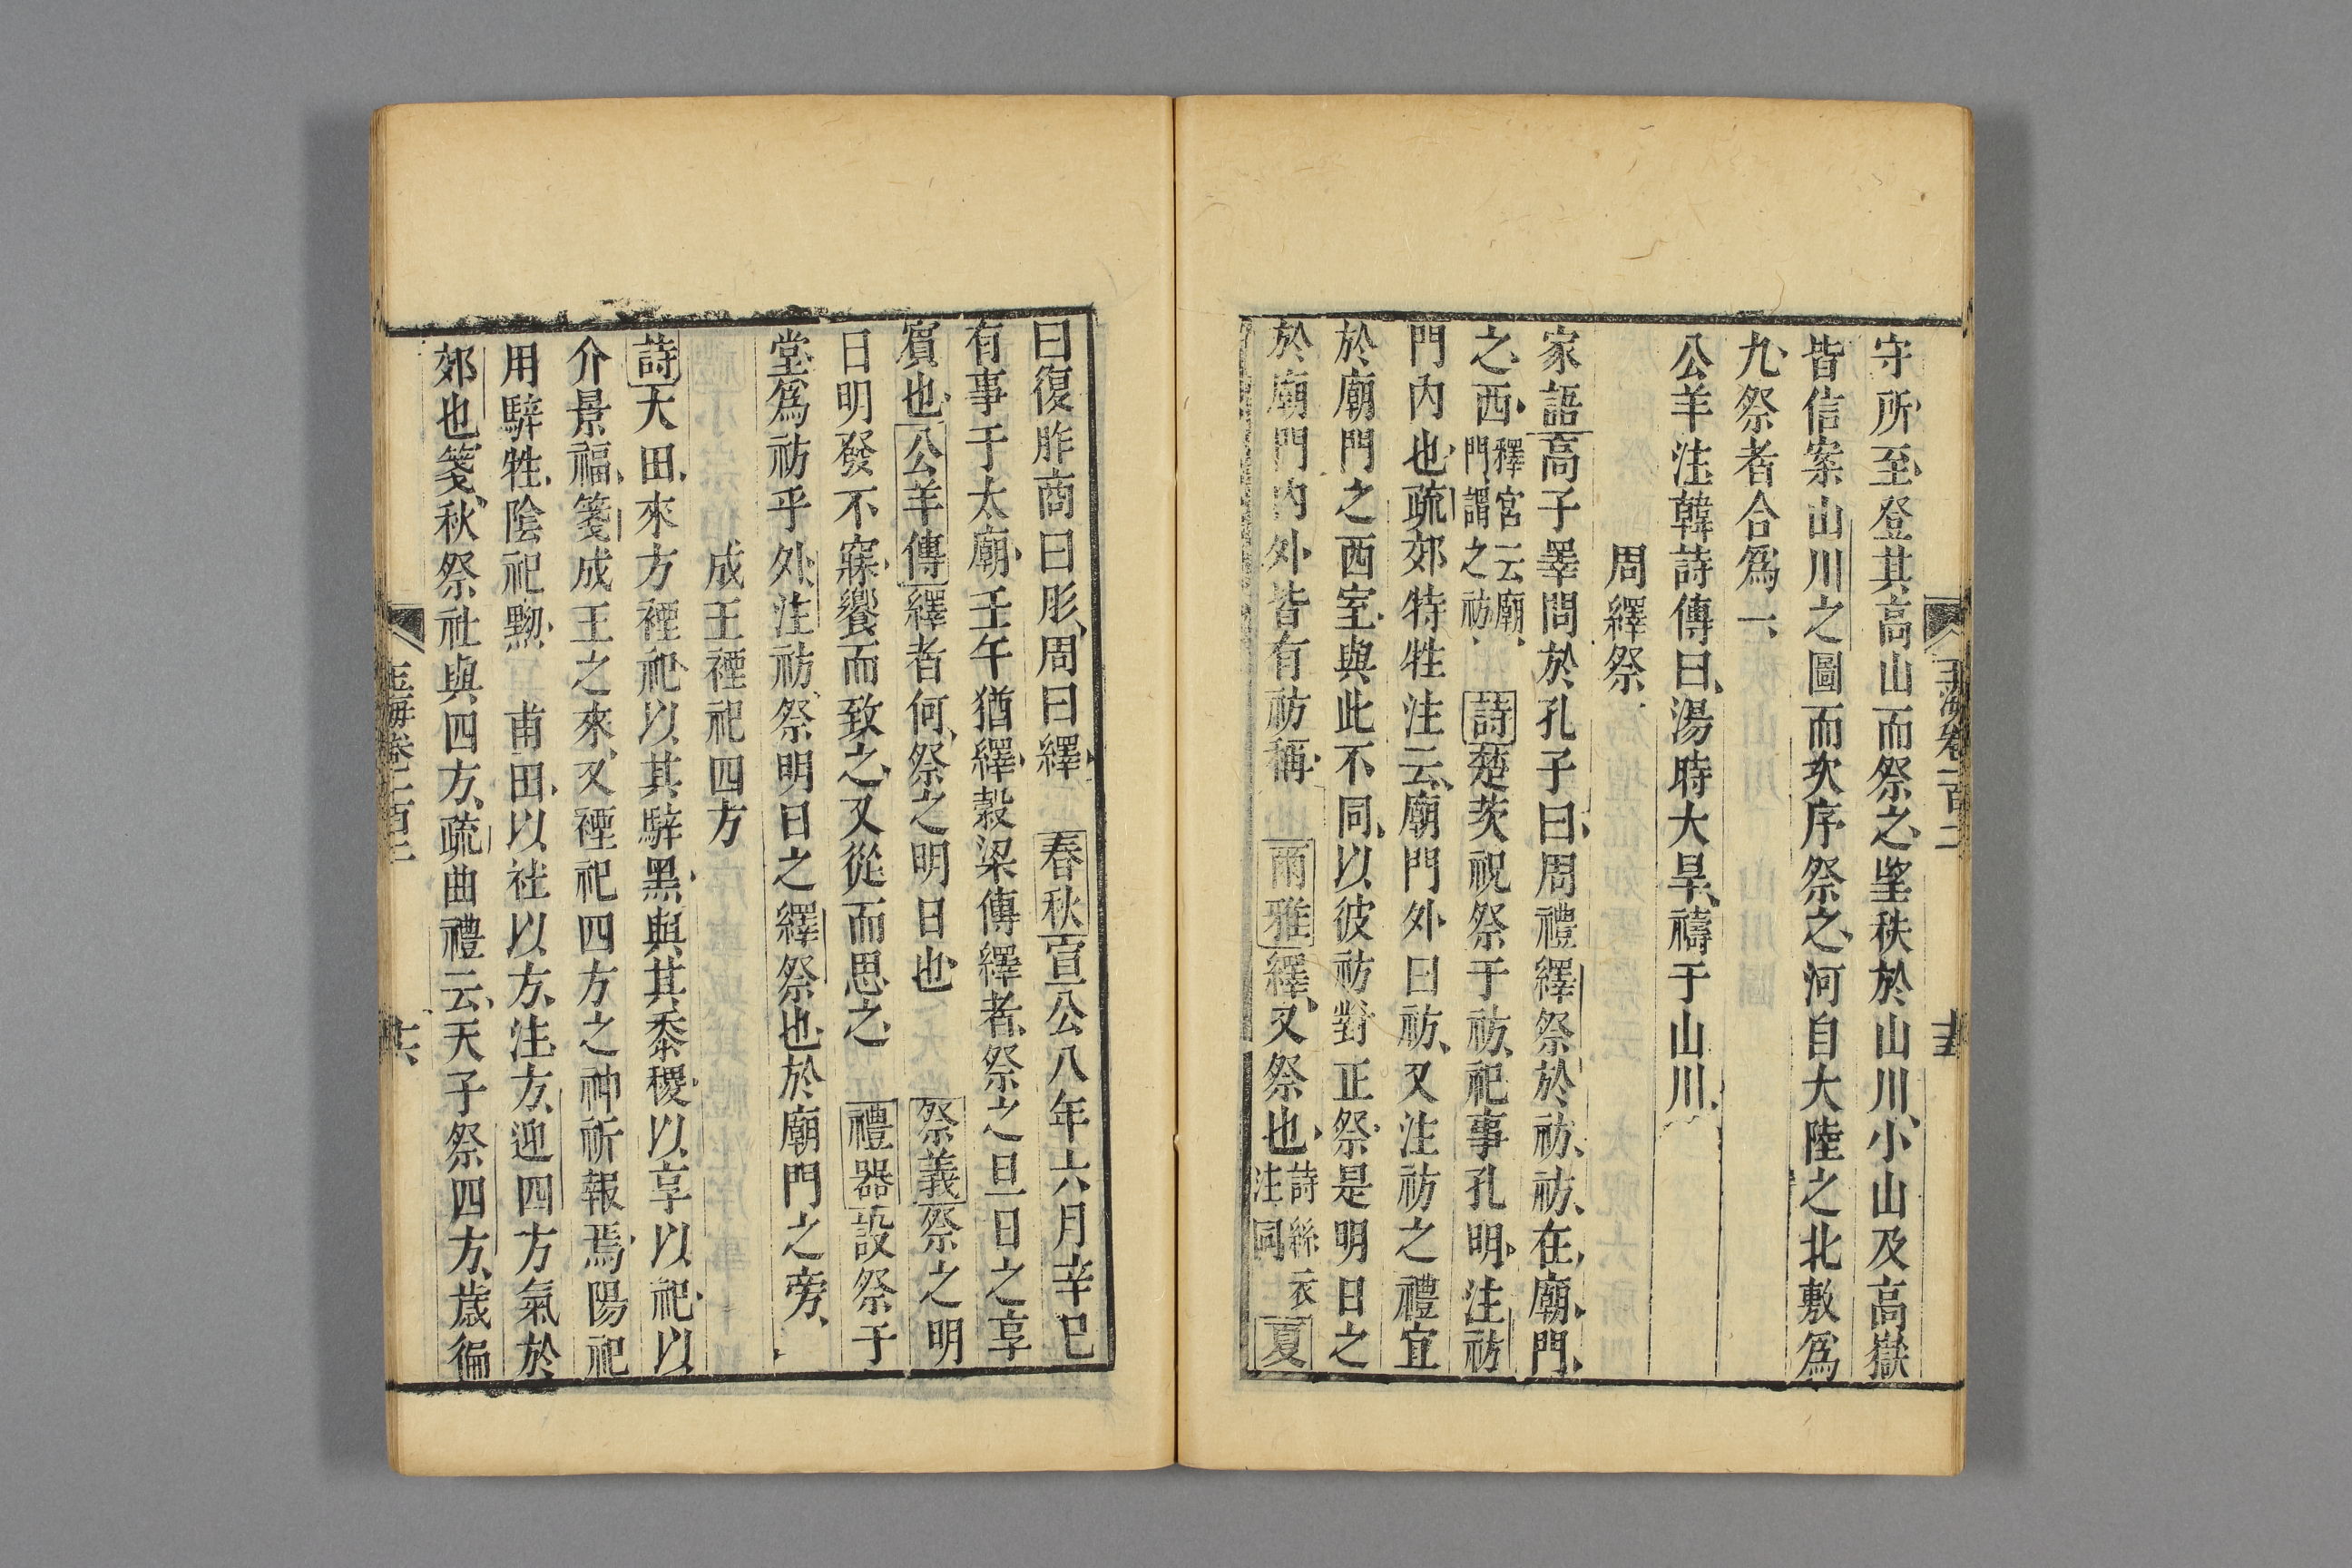 玉海卷二百二
十五
守所至登其高山而祭之望秩於山川小山及高嶽
皆信案山川之圖而次序祭之河自大陸之北敷爲
九祭者合爲一
公羊注韓詩傳曰湯時大旱禱于山川
周繹祭
家語高子睪問於孔子曰周禮繹祭於祊祊在廟門
之西釋宮云廟門謂之祊 詩楚茨祝祭于祊祀事孔明注祊
門內也疏郊特牲注云廟門外曰祊又注祊之禮宜
於廟門之西室與此不同以彼祊對正祭是明日之
於廟門內外皆有祊稱 爾雅繹又祭也詩絲衣注同 夏
曰復胙商曰肜周曰繹 春秋宣公八年六月辛巳
有事于太廟壬午猶繹穀梁傳繹者祭之旦日之享
賓也公羊傳繹者何祭之明日也 祭義祭之明
日明發不寐饗而致之又從而思之 禮器設祭于
堂爲祊乎外注祊祭明日之繹祭也於廟門之旁
成王禋祀四方
詩大田來方禋祀以其騂黑與其黍稷以享以祀以
介景福箋成王之來又禋祀四方之神祈報焉陽祀
用騂牲陰祀黝 甫田以社以方注方迎四方氣於
郊也箋秋祭社與四方疏曲禮云天子祭四方歲徧
玉海卷二百二
十六